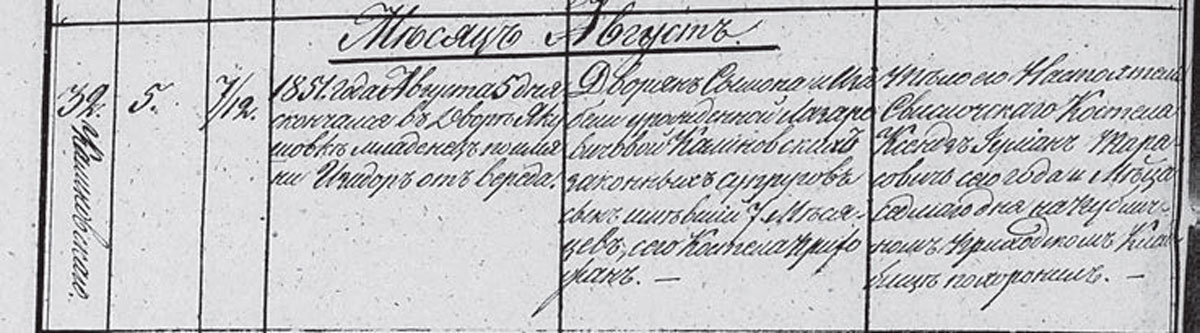 Мѣсяцъ Августъ.
32.
Калиновскаго.
5.
7/12.
1851 года Августа 5 дня
скончался въ Дворѣ Яку
шовкѣ младенецъ по имя
ни Изидоръ отъ вереда.
Дворянъ Симона и Иза
бели урожденной Лазаро
вичовой Калиновскихъ
законныхъ супруговъ
сынъ имѣвшій 7 Мѣся
цевъ, сего Костела прихо
жанъ. —
тѣло его Настоятель
Свислочскаго Костела
Ксендзъ Германъ Тара
совичь сего года и Мѣсяца
седмаго дня на
номъ приходскомъ Кла
бищѣ похоронилъ. —